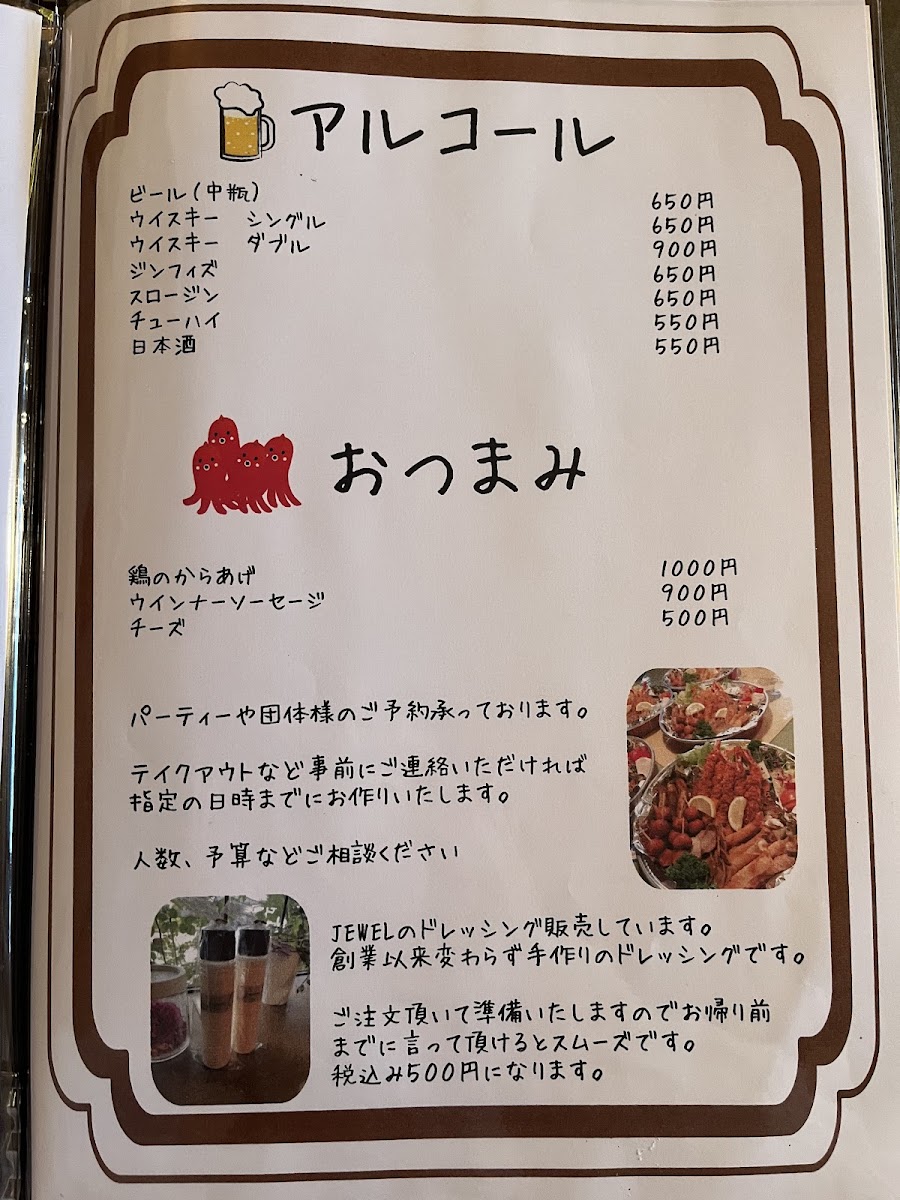 アルコール
ビール(中瓶) 650円
ウイスキー シングル 650円
ウイスキー ダブル 900円
ジンフィズ 650円
スロージン 650円
チューハイ 550円
日本酒 550円
おつまみ
鶏のからあげ 1000円
ウインナーソーセージ 900円
チーズ 500円
パーティーや団体様のご予約承っております。
テイクアウトなど事前にご連絡いただければ
指定の日時までにお作りいたします。
人数、予算などご相談ください
JEWELのドレッシング販売しています。
創業以来変わらず手作りのドレッシングです。
ご注文頂いて準備いたしますのでお帰り前
までに言って頂けるとスムーズです。
税込み500円になります。